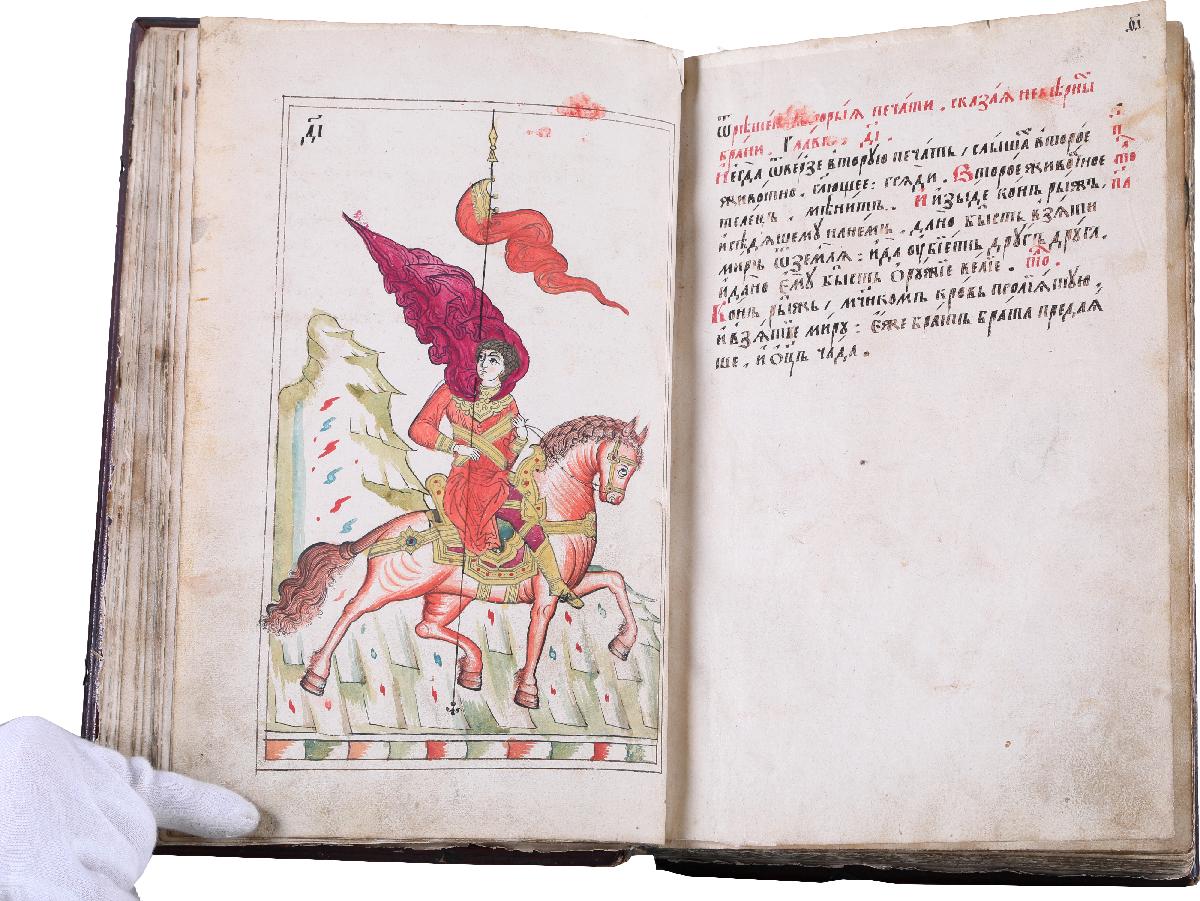 д҃і
ѿрѣшеніе вторыѧ печати. сказаѧ невѣрны
брани. глава. д҃і.
Иегда ѿверзе вторую печать, слышах второе
животно, глющее: гряди. Второе животное
телецъ, мѣнитъ. И изыде конь рыжь,
и сѣдящему на немъ, дано бысть взяти
миръ ѿ землѧ: и да оубіетъ другъ друга.
и дано ему бысть оружіе веліе.
Конь рыжь, мчнкомъ кровь проліяшую,
и взятіе миру: еже братъ брата предая
ше, и оцъ чада.